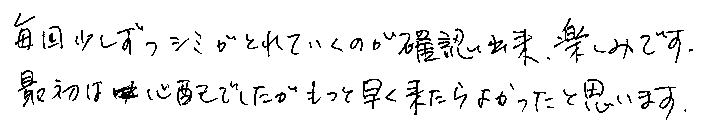 毎回少しずつシミがとれていくのが確認出来、楽しみです。
最初は心配でしたがもっと早く来たらよかったと思います。